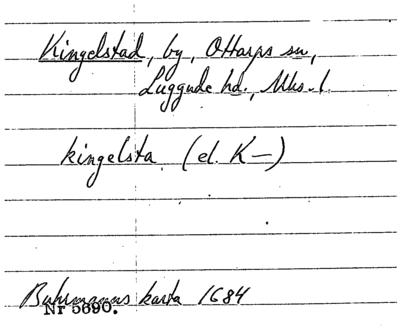 Kingelstad, by, Ottarps sn,
Luggude hd., Mks. l.
kingelsta (el. K—)
Buhrmanns karta 1684
Nr 5690.